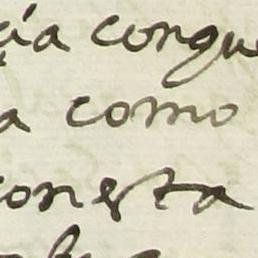 çia conque
a como
con esta